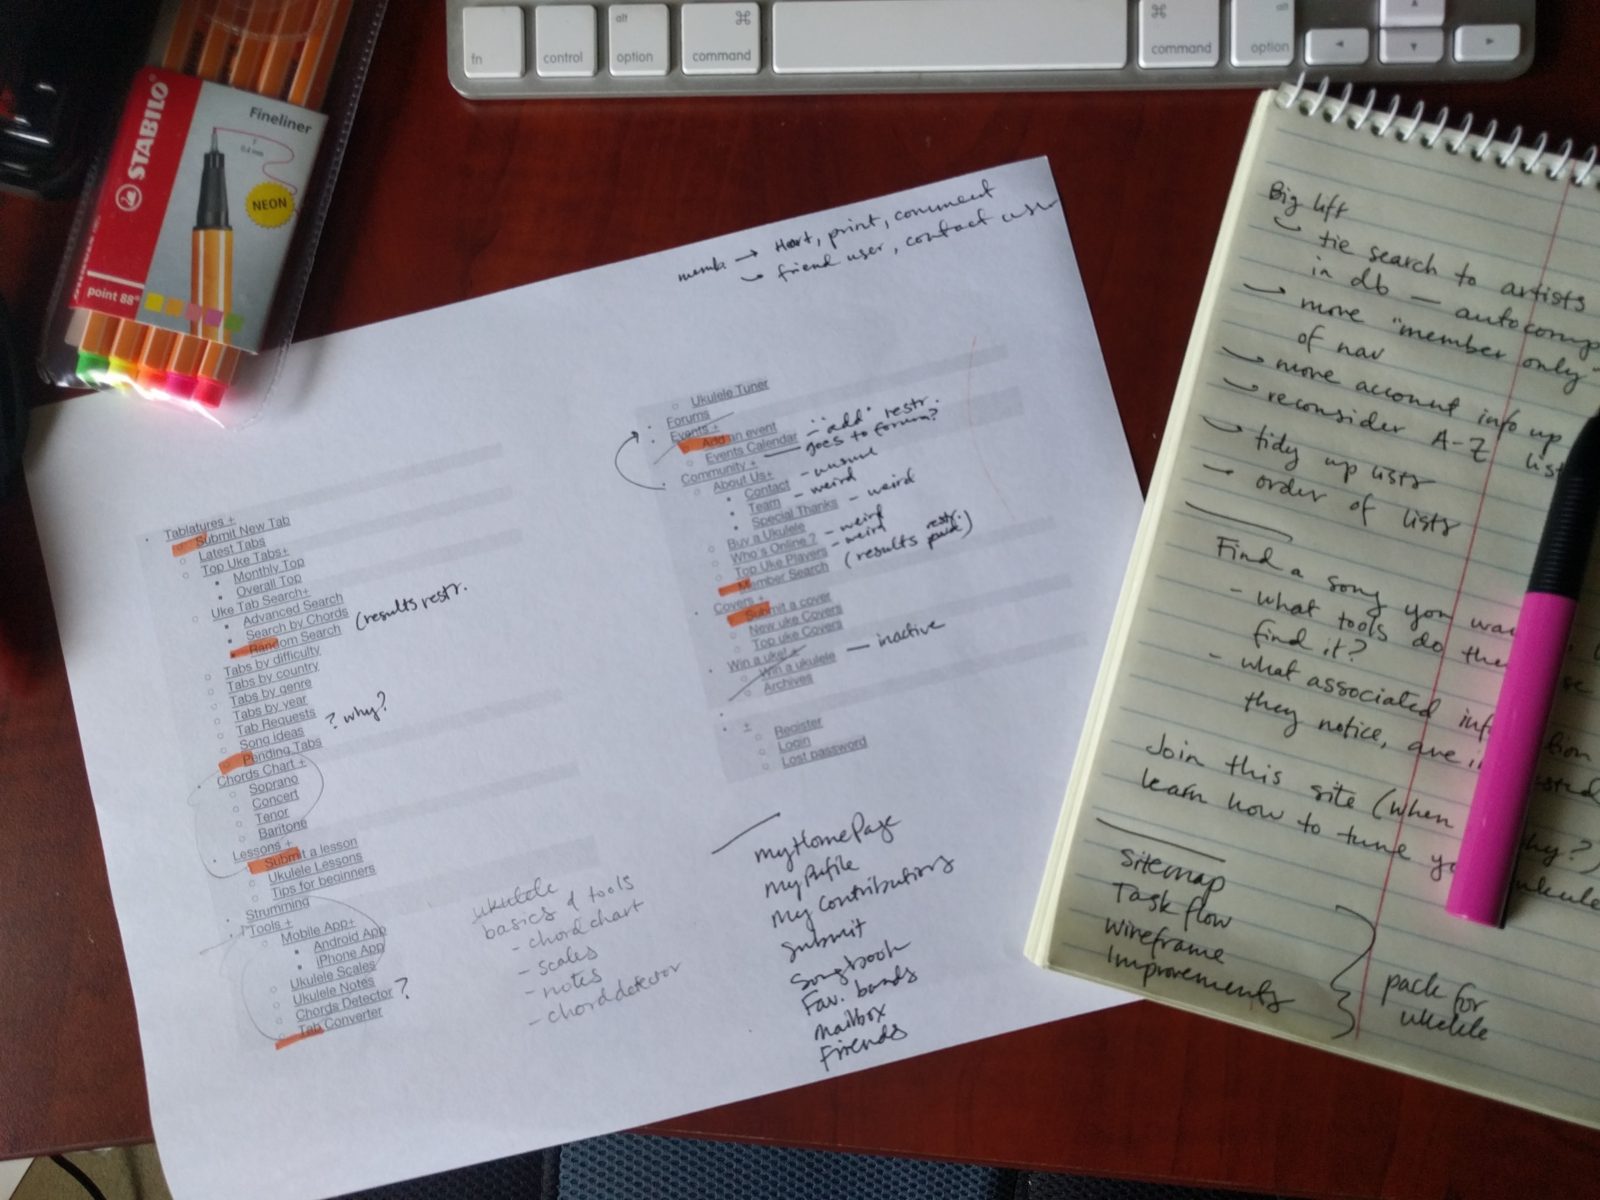 fn
control
alt
option
command
command
alt
option
STABILO
Fineliner
0.4 mm
NEON
point 88
memb. → Heart, print, comment
friend user, contact user
Tablatures +
Submit New Tab
Latest Tabs
Top Uke Tabs+
Monthly Top
Overall Top
Uke Tab Search+
Advanced Search
Search by Chords
Random Search (results restr.
Tabs by difficulty
Tabs by country
Tabs by genre
Tabs by year
Tab Requests
Song Ideas ? why?
Pending Tabs
Chords Chart +
Soprano
Concert
Tenor
Baritone
Lessons +
Submit a lesson
Ukulele Lessons
Tips for beginners
Strumming
Tools +
Mobile App+
Android App
iPhone App
Ukulele Scales
Ukulele Notes
Chords Detector ?
Tab Converter
Ukulele Tuner
Forums
Events +
Add an event - "add" restr.
Events Calendar
Community + — goes to forum?
About Us+
Contact - unsure
Team - weird
Special Thanks - weird
Buy a Ukulele
Who's Online? - weird
Top Uke Players - weird restr.
Member Search (results
Covers +
Submit a cover
New uke Covers
Top uke Covers
Win a uke! +
Win a ukulele — inactive
Archives
+
Register
Login
Lost password
ukulele
basics & tools
- chord chart
- scales
- notes
- chord detector
myHomePage
myProfile
my contributions
Submit
Songbook
Fav. bands
mailbox
Friends
Big lift
tie search to artists
in db — autocomp
move "member only"
of nav
move account info up
reconsider A-Z list
tidy up lists
order of lists
Find a song you
- what tools do
find it?
- what associated
they notice, are
Join this site (when
learn how to tune
Sitemap
Task flow
wireframe
Improvements
pack for
ukulele